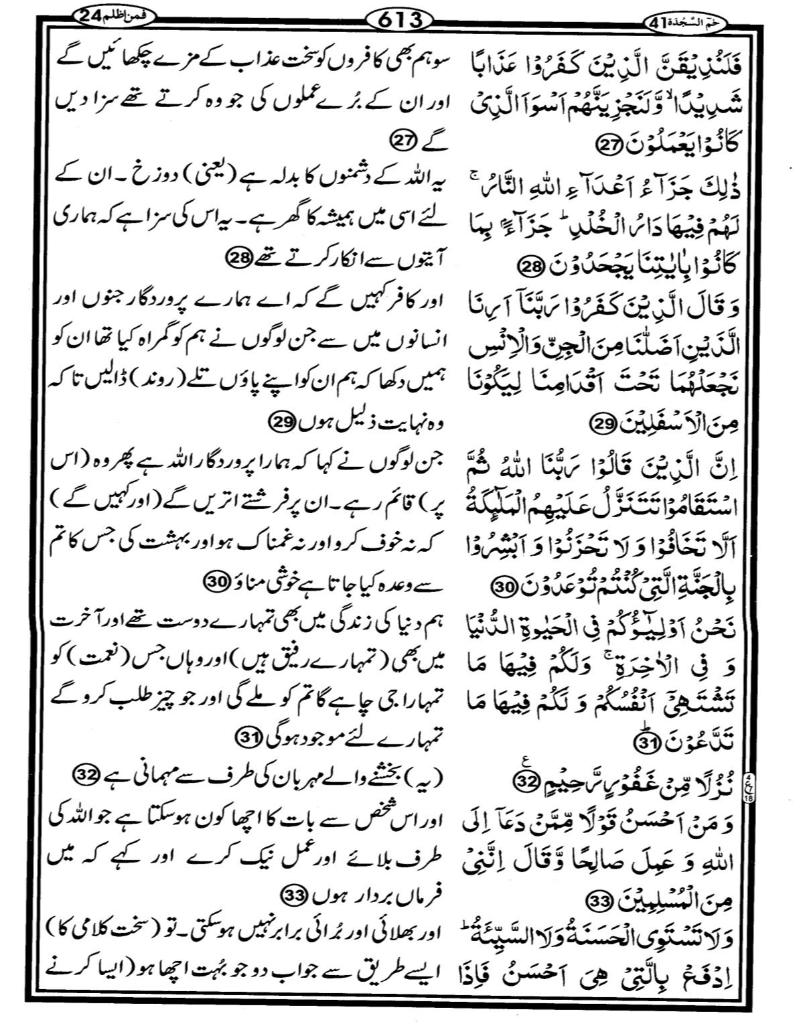 فمن اظلم 24
613
حٰمٓ السّجدة 41
فَلَنُذِيۡقَنَّ الَّذِيۡنَ كَفَرُوۡا عَذَابًا
شَدِيۡدًا ۙ وَّلَنَجۡزِيَنَّهُمۡ اَسۡوَاَ الَّذِىۡ
كَانُوۡا يَعۡمَلُوۡنَ 27
ذٰلِكَ جَزَآءُ اَعۡدَآءِ اللّٰهِ النَّارُ ۚ
لَهُمۡ فِيۡهَا دَارُ الۡخُلۡدِ ؕ جَزَآءًۢ بِمَا
كَانُوۡا بِاٰيٰتِنَا يَجۡحَدُوۡنَ 28
وَقَالَ الَّذِيۡنَ كَفَرُوۡا رَبَّنَاۤ اَرِنَا
الَّذَيۡنِ اَضَلّٰنَا مِنَ الۡجِنِّ وَالۡاِنۡسِ
نَجۡعَلۡهُمَا تَحۡتَ اَقۡدَامِنَا لِيَكُوۡنَا
مِنَ الۡاَسۡفَلِيۡنَ 29
اِنَّ الَّذِيۡنَ قَالُوۡا رَبُّنَا اللّٰهُ ثُمَّ
اسۡتَقَامُوۡا تَتَنَزَّلُ عَلَيۡهِمُ الۡمَلٰٓئِكَةُ
اَلَّا تَخَافُوۡا وَلَا تَحۡزَنُوۡا وَاَبۡشِرُوۡا
بِالۡجَنَّةِ الَّتِىۡ كُنۡتُمۡ تُوۡعَدُوۡنَ 30
نَحۡنُ اَوۡلِيٰٓؤُكُمۡ فِى الۡحَيٰوةِ الدُّنۡيَا
وَفِى الۡاٰخِرَةِ ۚ وَلَكُمۡ فِيۡهَا مَا
تَشۡتَهِىۡۤ اَنۡفُسُكُمۡ وَلَكُمۡ فِيۡهَا مَا
تَدَّعُوۡنَ ؕ 31
نُزُلًا مِّنۡ غَفُوۡرٍ رَّحِيۡمٍ 32 ع
وَمَنۡ اَحۡسَنُ قَوۡلًا مِّمَّنۡ دَعَاۤ اِلَى
اللّٰهِ وَعَمِلَ صَالِحًا وَّقَالَ اِنَّنِىۡ
مِنَ الۡمُسۡلِمِيۡنَ 33
وَلَا تَسۡتَوِى الۡحَسَنَةُ وَلَا السَّيِّئَةُ ؕ
اِدۡفَعۡ بِالَّتِىۡ هِىَ اَحۡسَنُ فَاِذَا
سو ہم بھی کافروں کو سخت عذاب کے مزے چکھائیں گے
اور ان کے بُرے عملوں کی جو وہ کرتے تھے سزا دیں
گے 27
یہ اللہ کے دشمنوں کا بدلہ ہے (یعنی) دوزخ ۔ ان کے
لئے اسی میں ہمیشہ کا گھر ہے۔ یہ اس کی سزا ہے کہ ہماری
آیتوں سے انکار کرتے تھے 28
اور کافر کہیں گے کہ اے ہمارے پروردگار جنوں اور
انسانوں میں سے جن لوگوں نے ہم کو گمراہ کیا تھا ان کو
ہمیں دکھا کہ ہم ان کو اپنے پاؤں تلے (روند) ڈالیں تاکہ
وہ نہایت ذلیل ہوں 29
جن لوگوں نے کہا کہ ہمارا پروردگار اللہ ہے پھر وہ (اس
پر) قائم رہے۔ ان پر فرشتے اتریں گے (اور کہیں گے)
کہ نہ خوف کرو اور نہ غمناک ہو اور بہشت کی جس کا تم
سے وعدہ کیا جاتا ہے خوشی مناؤ 30
ہم دنیا کی زندگی میں بھی تمہارے دوست تھے اور آخرت
میں بھی (تمہارے رفیق ہیں) اور وہاں جس (نعمت) کو
تمہارا جی چاہے گا تم کو ملے گی اور جو چیز طلب کرو گے
تمہارے لئے موجود ہوگی 31
(یہ) بخشنے والے مہربان کی طرف سے مہمانی ہے 32
اور اس شخص سے بات کا اچھا کون ہوسکتا ہے جو اللہ کی
طرف بلائے اور عمل نیک کرے اور کہے کہ میں
فرماں بردار ہوں 33
اور بھلائی اور بُرائی برابر نہیں ہوسکتی۔ تو (سخت کلامی کا)
ایسے طریق سے جواب دو جو بُہت اچھا ہو (ایسا کرنے